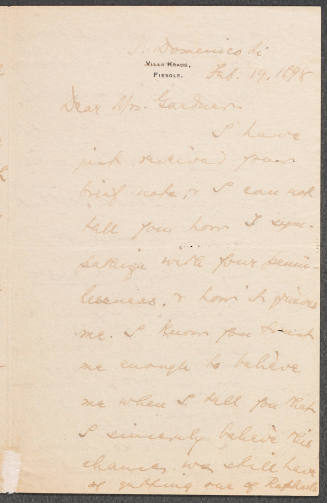 S. Domenico di
VILLA KRAUS,
FIESOLE.
Feb. 19, 1898
Dear Mrs. Gardner
I have
just received your
brief note, & I can not
tell you how I sym-
pathize with your
& how it grieves
me. I know you trust
me enough to believe
me when I tell you that
I sincerely believe the
chances we still have
of getting one of Raphaels